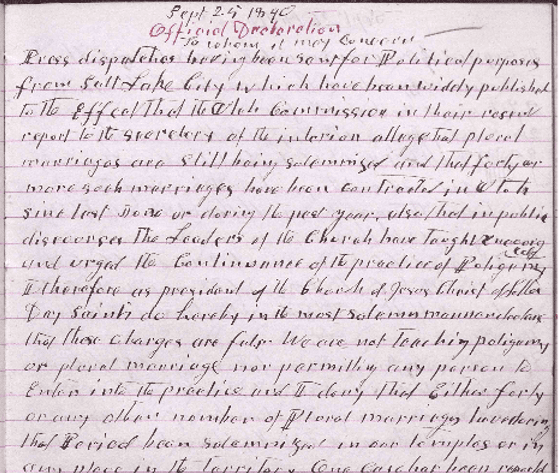 Sept 25 1890
Official Declaration
To whom it may Concern
Press dispatches having been sent for Political purposes
from Salt Lake City which have been widely published
to the Effect that the Utah Commission in their recent
report to the secretary of the interior allege that plural
marriages are still being solemnized and that forty or
more such marriages have been contracted in Utah
since last June or during the past year, also that in public
discourses the Leaders of the Church have taught encouraged
and urged the Continuance of the practice of Poligamy
I therefore as president of the Church of Jesus Christ of Latter
Day Saints do hereby in the most solemn manner declare
that these Charges are false We are not teaching poligamy
or plural marriage nor permitting any person to
Enter into the practice and I deny that Either forty
or any other number of Plural marriages have during
that Period been solemnized in our temples or in
any place in the Territory One case has been reported